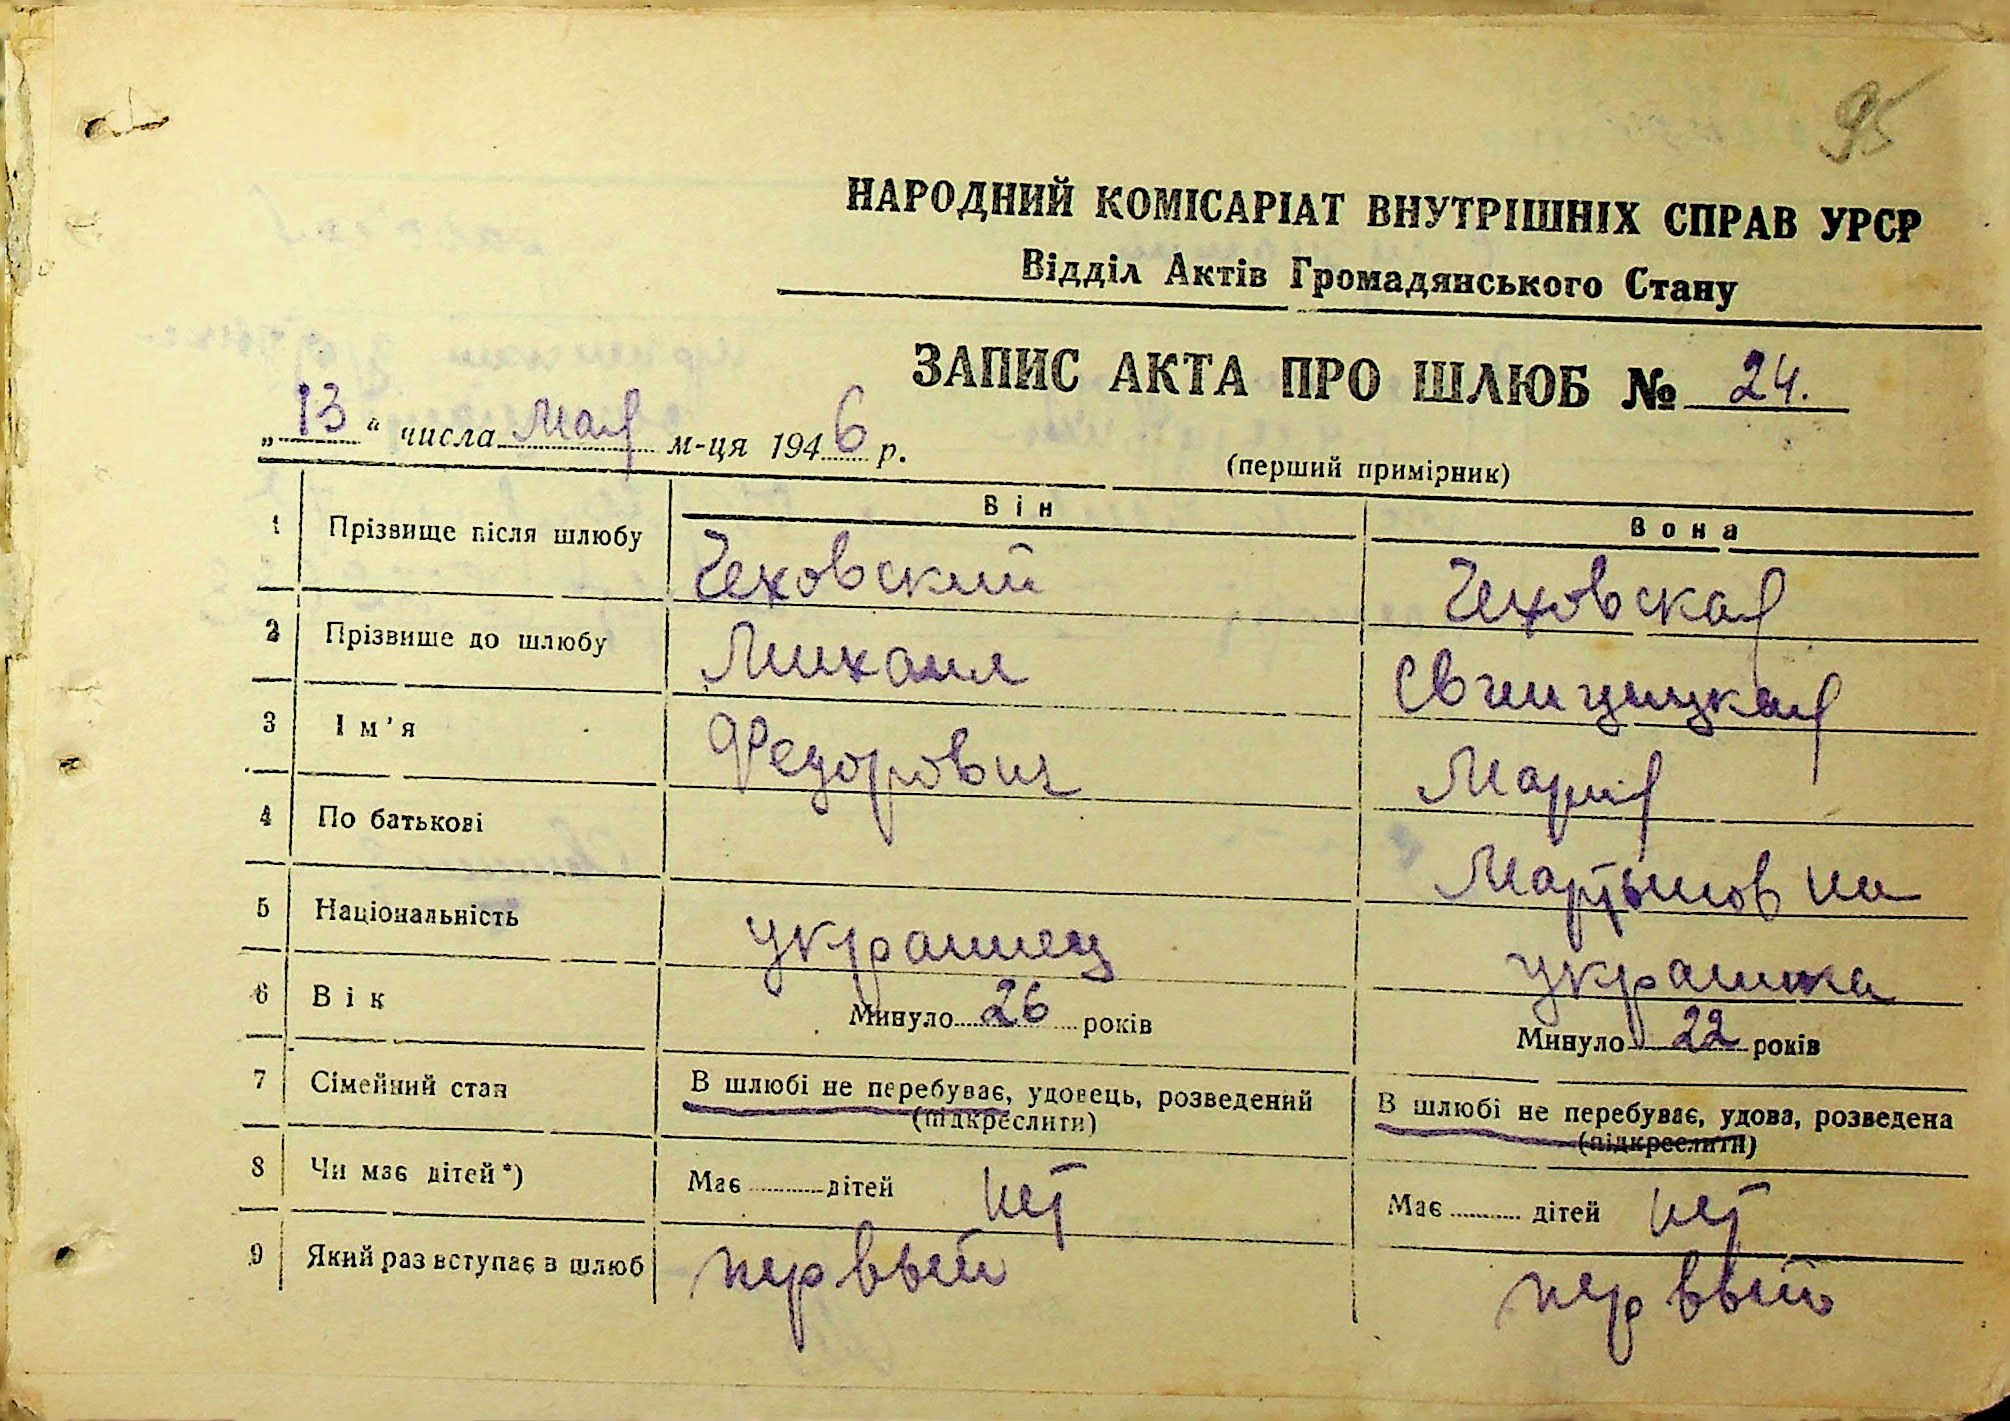 95
НАРОДНИЙ КОМІСАРІАТ ВНУТРІШНІХ СПРАВ УРСР
Відділ Актів Громадянського Стану
ЗАПИС АКТА ПРО ШЛЮБ № 24.
„13“ числа мая м-ця 1946 р.
(перший примірник)
Він Вона
1 Прізвище після шлюбу Чеховский Чеховская
2 Прізвище до шлюбу Михаил
3 Ім'я Федорович Мария
4 По батькові Мартыновна
5 Національність украинец украинка
6 Вік Минуло 26 років Минуло 22 років
7 Сімейний стан В шлюбі не перебуває, удовець, розведений В шлюбі не перебуває, удова, розведена
(підкреслити) (підкреслити)
8 Чи має дітей*) Має дітей нет Має дітей нет
9 Який раз вступає в шлюб первый первый